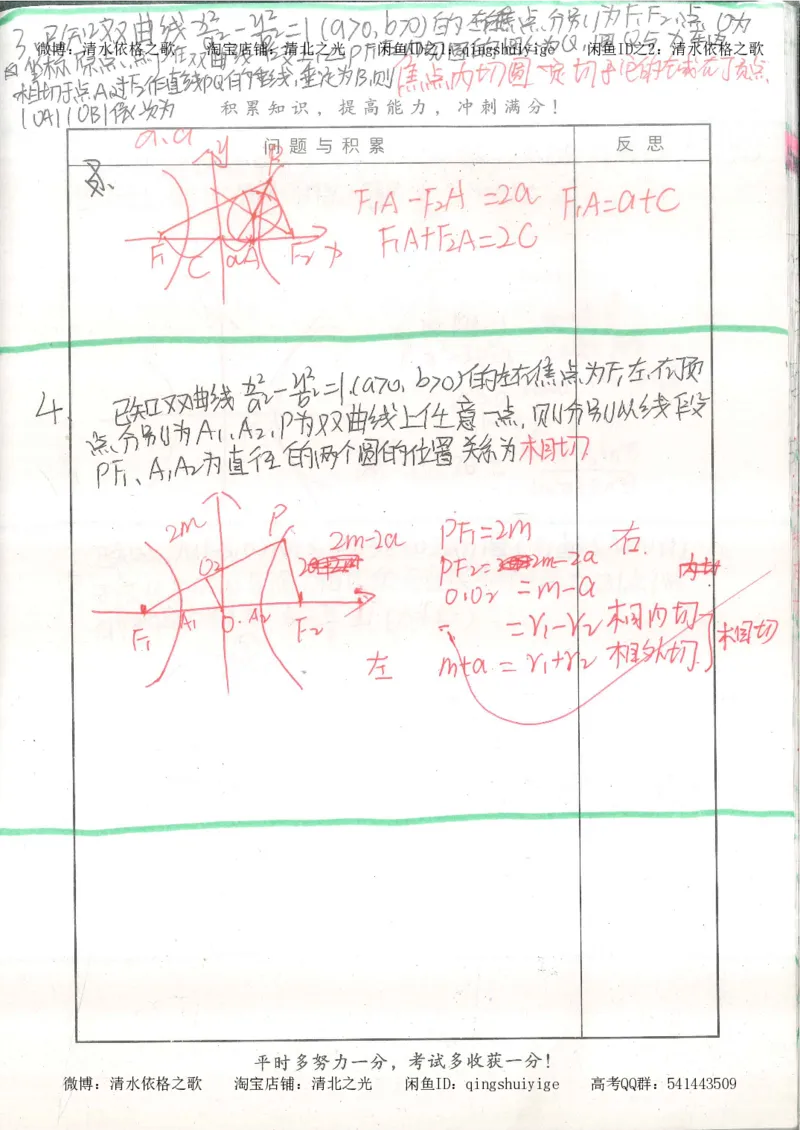 3. 已知双曲线 x²/a² - y²/b² = 1 (a>0, b>0) 的左右焦点分别为F₁F₂,点O为
微博：清水依格之歌 淘宝店铺：清北之光 闲鱼ID之1：qingshuiyige 闲鱼ID之2：清水依格之歌
坐标原点,点P在双曲线
相切于点A,过F₂作直线PQ的垂线,垂足为B,则
焦点内切圆一定切于它的左或右顶点
|OA| |OB|依次为
a、a
积累知识，提高能力，冲刺满分！
问题与积累 反思
y
P
F₁A - F₂A = 2a F₁A = a + C
F₁A + F₂A = 2C
F₁ C a A F₂ x
4. 已知双曲线 x²/a² - y²/b² = 1 (a>0, b>0) 的左右焦点为F₁左、右顶
点分别为A₁、A₂,P为双曲线上任意一点,则分别以线段
PF₁、A₁A₂为直径的两个圆的位置关系为相切
2m P 2m-2a PF₁=2m 右
O₂ PF₂=2m-2a 内切
O₁O₂ = m-a
= r₁-r₂ 相内切
F₁ A₁ O. A₂ F₂
左 m+a = r₁+r₂ 相外切 相切
平时多努力一分，考试多收获一分！
微博：清水依格之歌 淘宝店铺：清北之光 闲鱼ID：qingshuiyige 高考QQ群：541443509